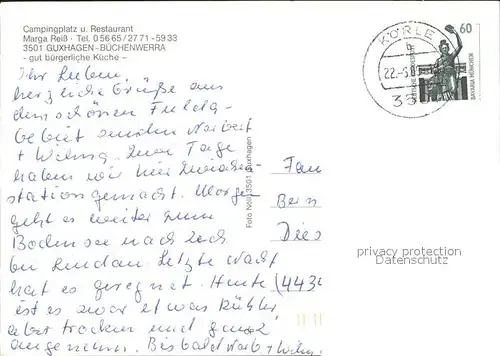 Campingplatz u. Restaurant
Marga Reiß · Tel. 0 56 65 / 27 71 - 59 33
3501 GUXHAGEN-BÜCHENWERRA
- gut bürgerliche Küche -
Ihr Lieben,
herzliche Grüße aus
dem schönen Fulda-
gebiet senden Norbert
+ Wilma. Zwei Tage
haben wir hier Zwischen-
station gemacht. Morgen
geht es weiter zum
Bodensee nach
bei Lindau. Letzte Nacht
hat es geregnet. Heute
ist es zwar etwas kühler,
aber trocken und ganz
angenehm. Bis bald Norb. + Wilma
Foto Nöll, 3501 Guxhagen
KÖRLE
22.-6.
35
60
DEUTSCHE BUNDESPOST
BAVARIA MÜNCHEN
Fam
Bern
Dies
(443
privacy protection
Datenschutz